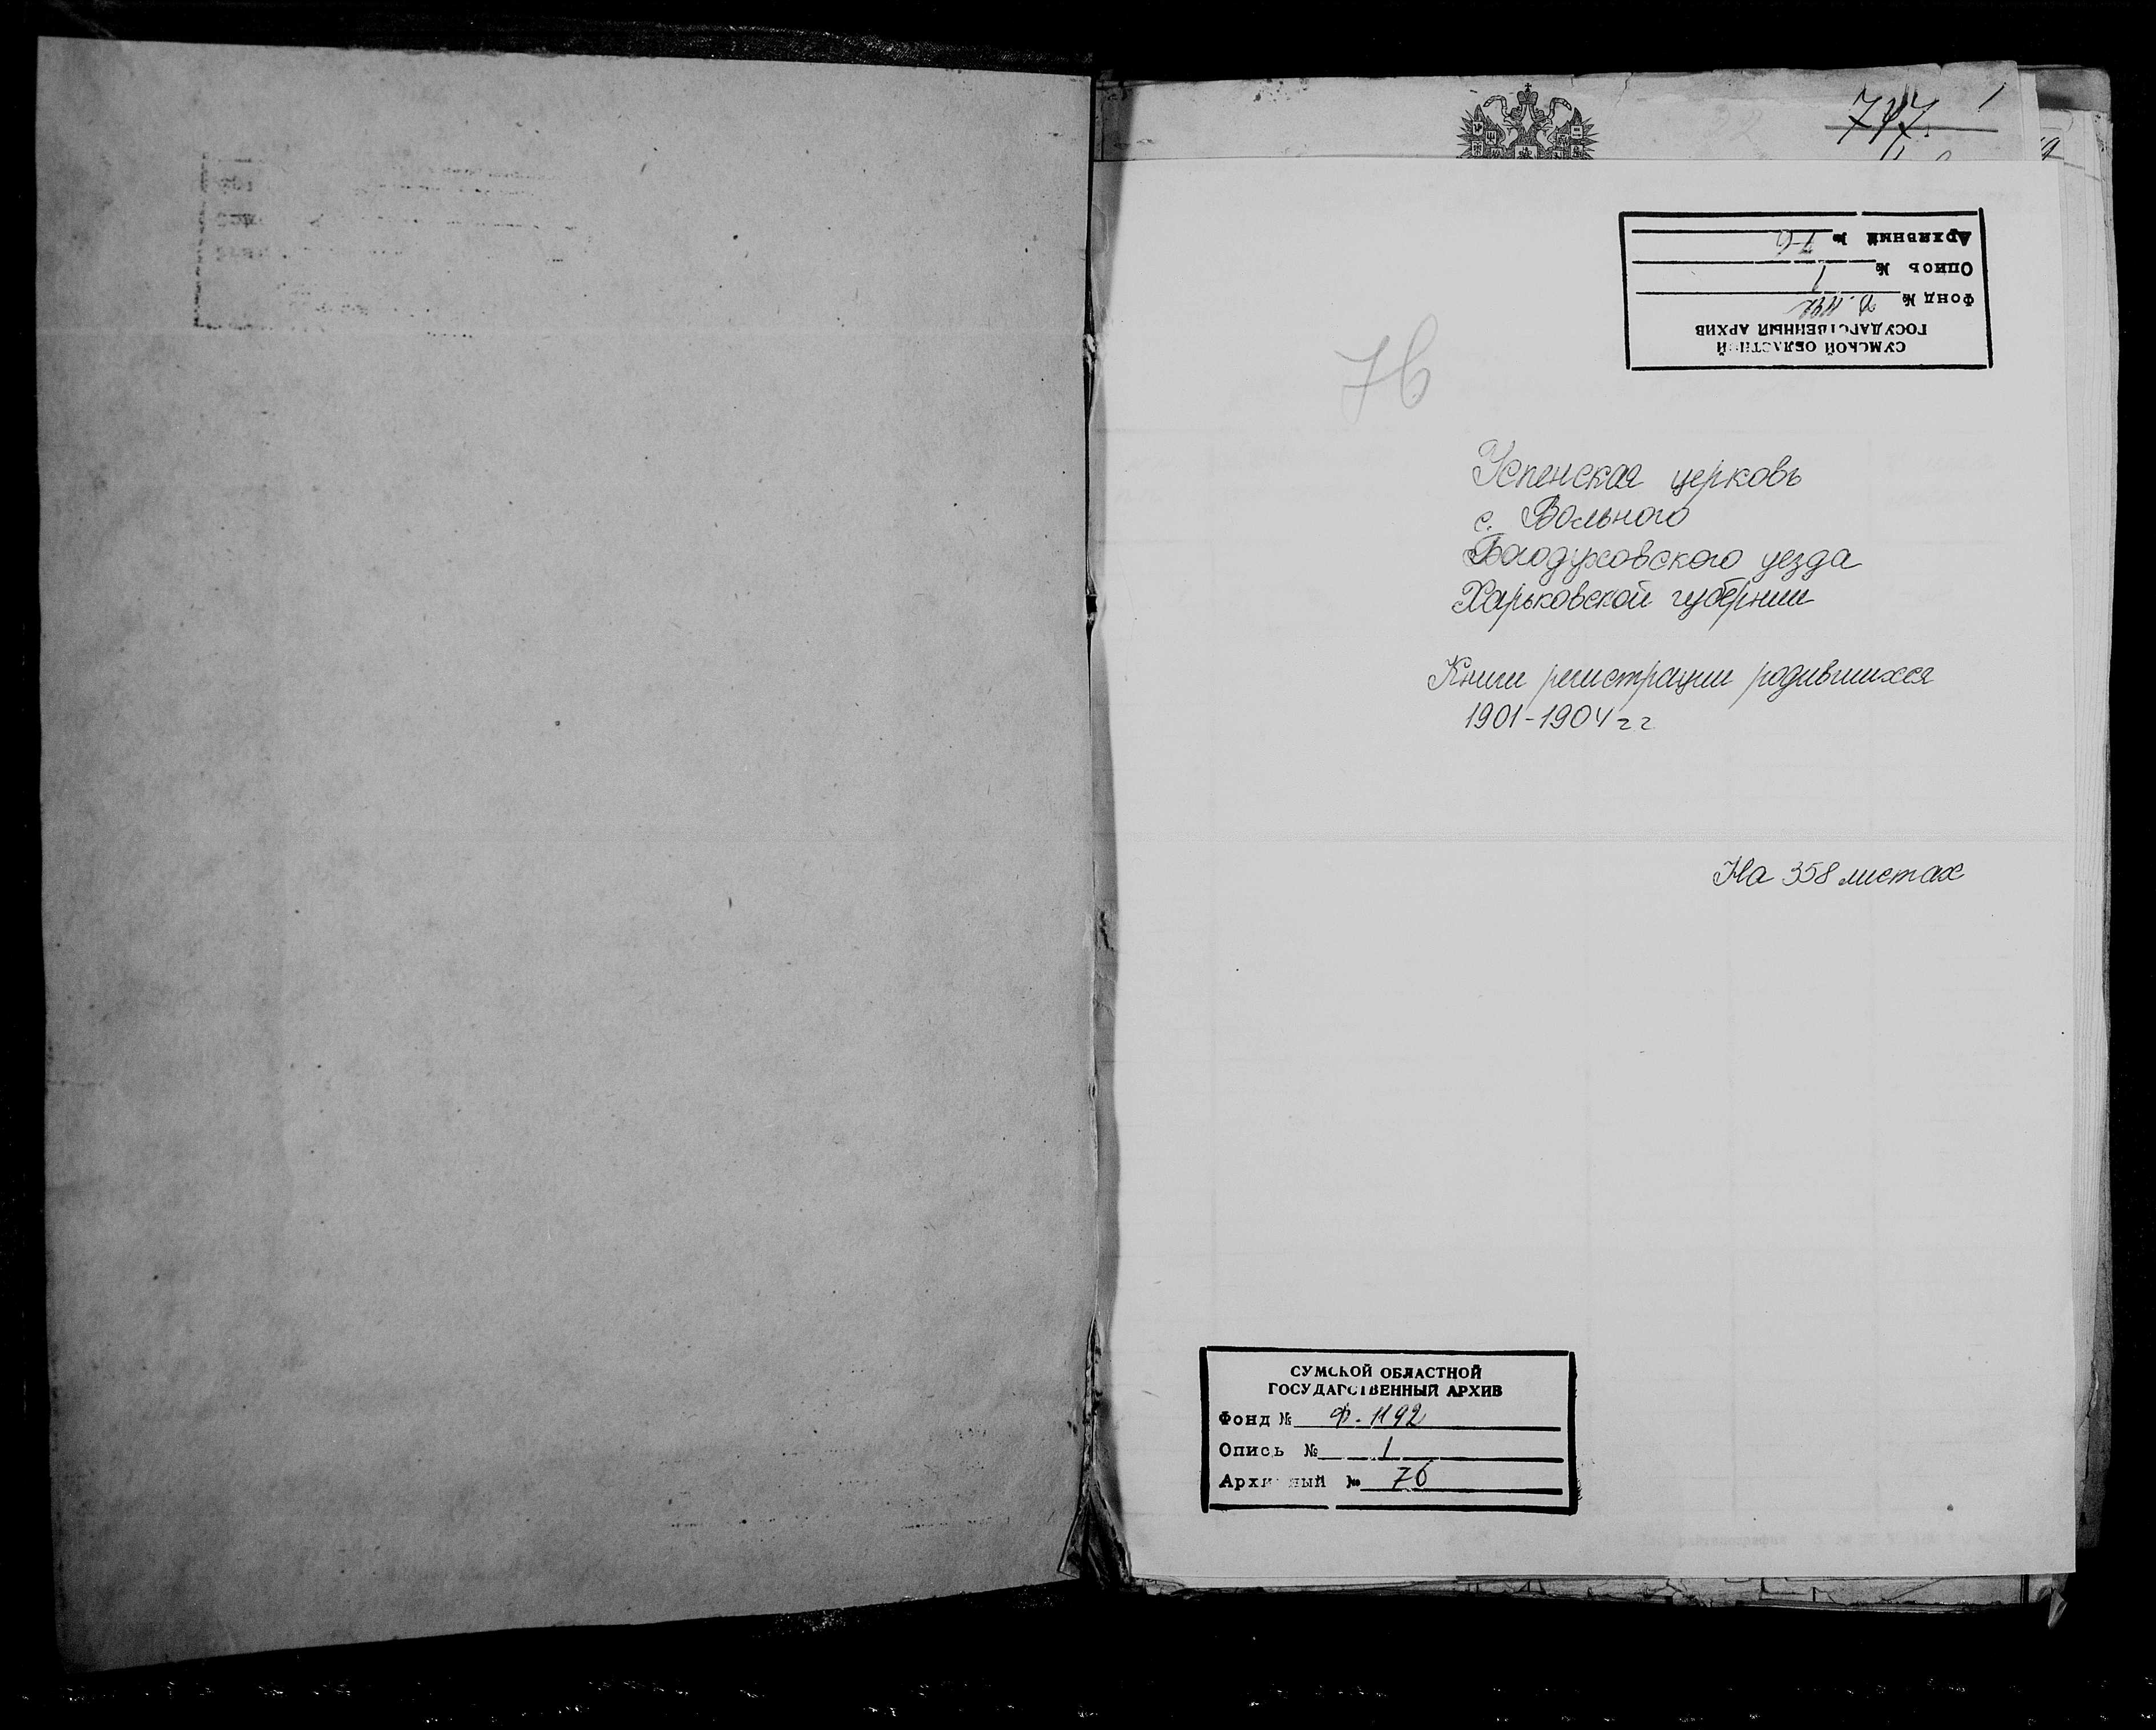 747 1
Архивный № 76
Опись № 1
Фонд № Ф. 1192
ГОСУДАРСТВЕННЫЙ АРХИВ
СУМСКОЙ ОБЛАСТНОЙ
76
Успенская церковь
с. Вольного
Богодуховского уезда
Харьковской губернии
Книги регистрации родившихся
1901-1904 г г
На 358 листах
СУМСКОЙ ОБЛАСТНОЙ
ГОСУДАРСТВЕННЫЙ АРХИВ
Фонд № Ф. 1192
Опись № 1
Архивный № 76